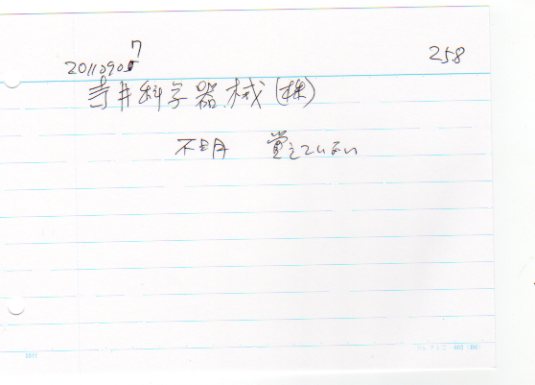 20110907 258
寺井科学器械(株)
不明 覚えていない